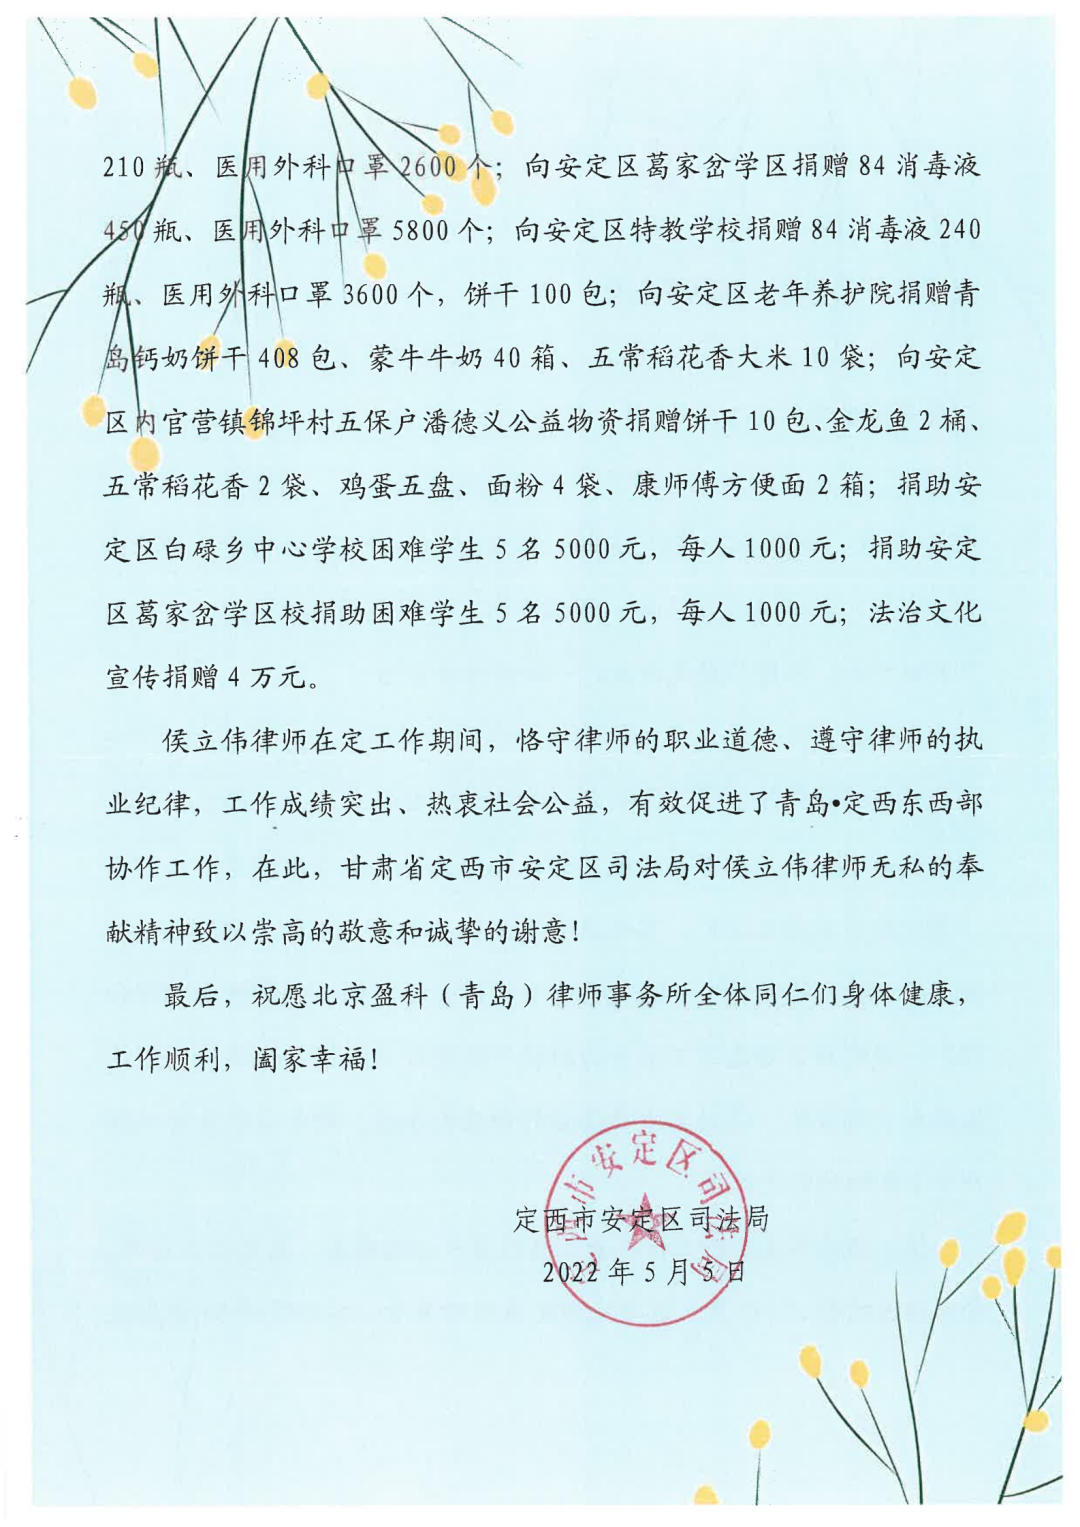 210 瓶、医用外科口罩 2600 个；向安定区葛家岔学区捐赠 84 消毒液
450 瓶、医用外科口罩 5800 个；向安定区特教学校捐赠 84 消毒液 240
瓶、医用外科口罩 3600 个，饼干 100 包；向安定区老年养护院捐赠青
岛钙奶饼干 408 包、蒙牛牛奶 40 箱、五常稻花香大米 10 袋；向安定
区内官营镇锦坪村五保户潘德义公益物资捐赠饼干 10 包、金龙鱼 2 桶、
五常稻花香 2 袋、鸡蛋五盘、面粉 4 袋、康师傅方便面 2 箱；捐助安
定区白碌乡中心学校困难学生 5 名 5000 元，每人 1000 元；捐助安定
区葛家岔学区校捐助困难学生 5 名 5000 元，每人 1000 元；法治文化
宣传捐赠 4 万元。
侯立伟律师在定工作期间，恪守律师的职业道德、遵守律师的执
业纪律，工作成绩突出、热衷社会公益，有效促进了青岛•定西东西部
协作工作，在此，甘肃省定西市安定区司法局对侯立伟律师无私的奉
献精神致以崇高的敬意和诚挚的谢意！
最后，祝愿北京盈科（青岛）律师事务所全体同仁们身体健康，
工作顺利，阖家幸福！
定西市安定区司法局
定西市安定区司法局
2022 年 5 月 5 日